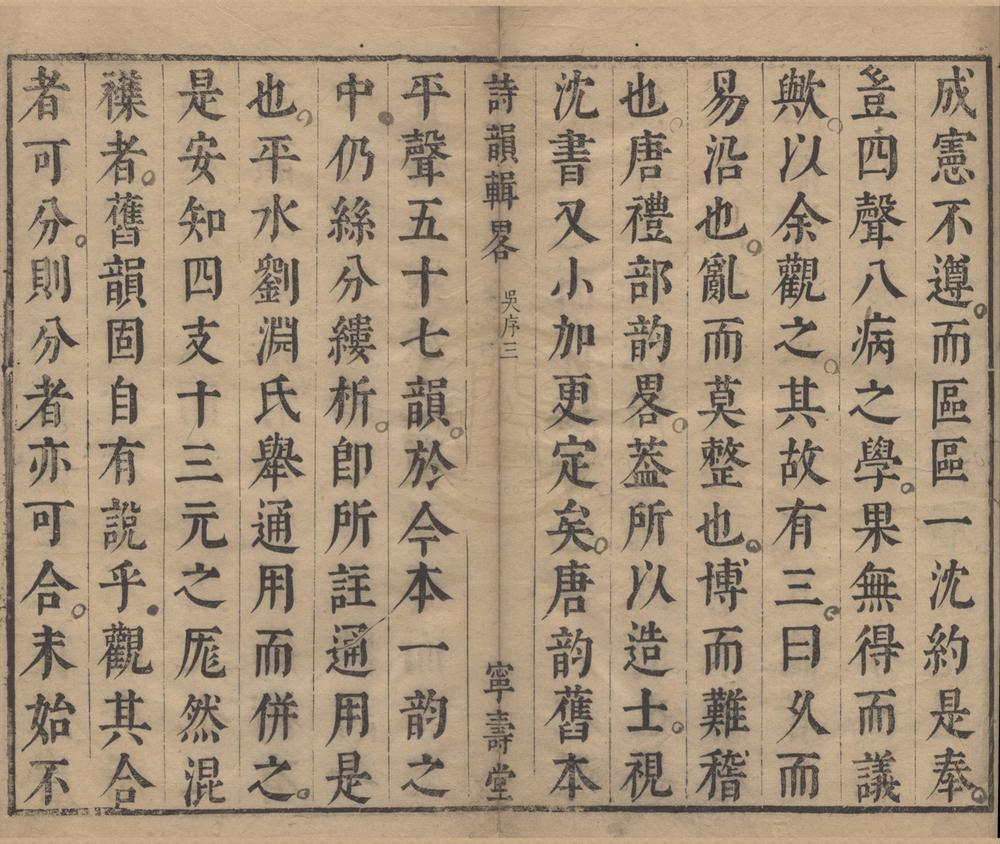 成憲不遵而區區一沈約是奉
豈四聲八病之學果無得而議
歟以余觀之其故有三曰乆而
易沿也亂而莫整也博而難稽
也唐禮部韵畧葢所以造士視
沈書又小加更定矣唐韵舊本
詩韻輯畧 吳序三 寧壽堂
平聲五十七韻於今本一韵之
中仍絲分縷析卽所註通用是
也平水劉淵氏舉通用而併之
是安知四支十三元之厖然混
襍者舊韻固自有說乎觀其合
者可分則分者亦可合未始不